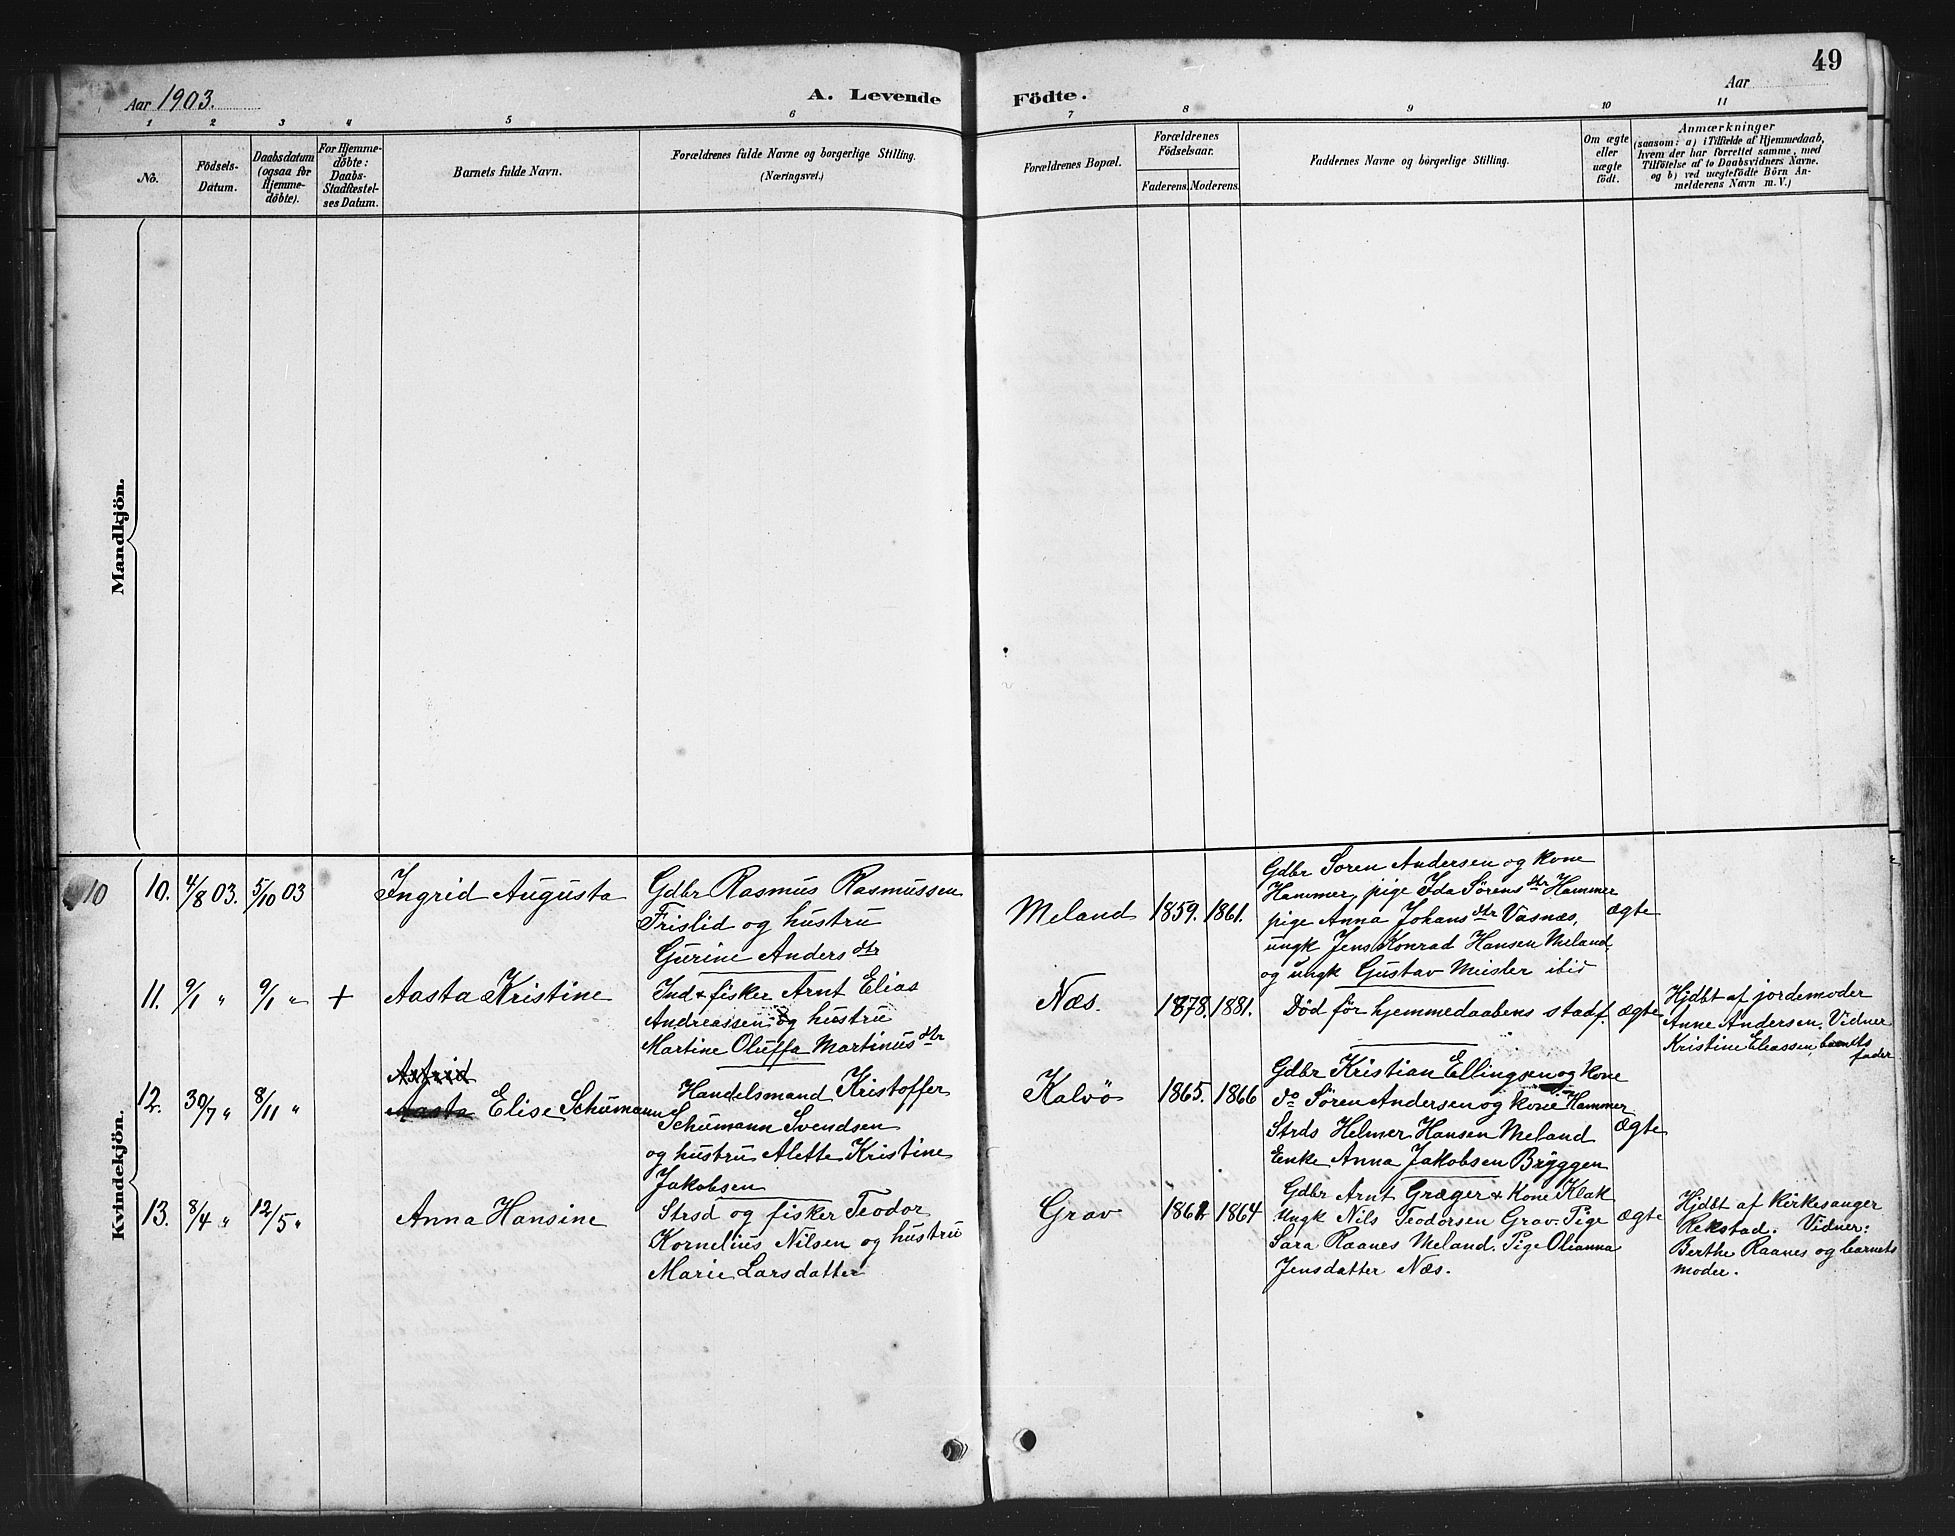 49
Aar 1903.
A. Levende Födte.
Aar
1 2 3 4 5 6 7 8 9 10 11
No.
Födsels-
Datum.
Daabsdatum
(ogsaa for
Hjemme-
døbte).
For Hjemme-
døbte:
Daabs-
Stadfæstel-
ses Datum.
Barnets fulde Navn.
Forældrenes fulde Navne og borgerlige Stilling.
(Næringsvei.)
Forældrenes Bopæl.
Forældrenes
Födselsaar.
Faderens. Moderens.
Faddernes Navne og borgerlige Stilling.
Om ægte
eller
uægte
födt.
Anmærkninger
(saasom: a) i Tilfælde af Hjemmedaab,
hvem der har forrettet samme, med
Tilføielse af to Daabsvidners Navne.
og b) ved uægtefödte Börn An-
melderens Navn m. V.)
Mandkjön.
Kvindekjön.
10
10. 4/8 03. 5/10 03
Ingrid Augusta
Gdbr Rasmus Rasmussen
Frislid og hustru
Gurine Anders dtr
Meland 1859. 1861.
Gdbr Soren Andersen og kone
Hammer, pige Ida Sørens dtr Hammer
pige Anna Johans dtr Vasnæs,
ungk Jens Konrad Hansen Meland
og ungk Gustav Meisler ibid
ægte
11. 9/1 " 9/1 " +
Aasta Kristine
Ind & fisker Arnt Elias
Andreassen og hustru
Martine Oluffa Martinus dtr
Næs. 1878. 1881.
Död för hjemmedaabens stadf. ægte
Hjdbt af jordemoder
Anne Andersen. Vidner
Kristine Eliassen, barnets
fader
12. 30/7 " 8/11 "
Astrid
Aasta Elise Schumann
Handelsmand Kristoffer
Schumann Svendsen
og hustru Alette Kristine
Jakobsen
Kalvö 1865. 1866
Gdbr Kristian Ellingsen og kone
do Sören Andersen og kone Hammer
Strds Helmer Hansen Meland
Enke Anna Jakobsen Bryggen
Ægte
13. 8/4 " 12/5 "
Anna Hansine
Strsd og fisker Teodor
Kornelius Nilsen og hustru
Marie Larsdatter
Grav 1862 1864
Gdbr Arnt Græger & Kone Klak
Ungk Nils Teodorsen Grav. Pige
Sara Raanes Meland. Pige Olianna
Jensdatter Næs.
Ægte
Hjdbt af kirkesanger
Rekstad. Vidner:
Berthe Raanes og barnets
moder.